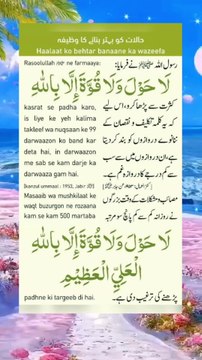 حالات کو بہتر بنانے کا وظیفہ
Haalaat ko behtar banaane ka wazeefa
Rasoolullah ﷺ ne farmaaya:
رسول اللہ ﷺ نے فرمایا:
لَا حَوْلَ وَلَا قُوَّةَ إِلَّا بِاللّٰهِ
kasrat se padha karo,
is liye ke yeh kalima
takleef wa nuqsaan ke 99
darwaazon ko band kar
deta hai, in darwaazon
me sab se kam darje ka
darwaaza gam hai.
[kanzul ummaal : 1953,
Masaaib wa mushkilaat ke
waqt buzurgon ne rozaana
kam se kam 500 martaba
کثرت سے پڑھا کرو، اس لیے
کہ یہ کلمہ تکلیف و نقصان کے
ننانوے دروازوں کو بند کر دیتا
ہے، ان دروازوں میں سب سے
کم درجے کا دروازہ غم ہے۔
مصائب و مشکلات کے وقت بزرگوں
نے روزانہ کم سے کم پانچ سو مرتبہ
لَا حَوْلَ وَلَا قُوَّةَ إِلَّا بِاللّٰهِ
الْعَلِيِّ الْعَظِيْمِ
padhne ki targeeb di hai.
پڑھنے کی ترغیب دی ہے۔